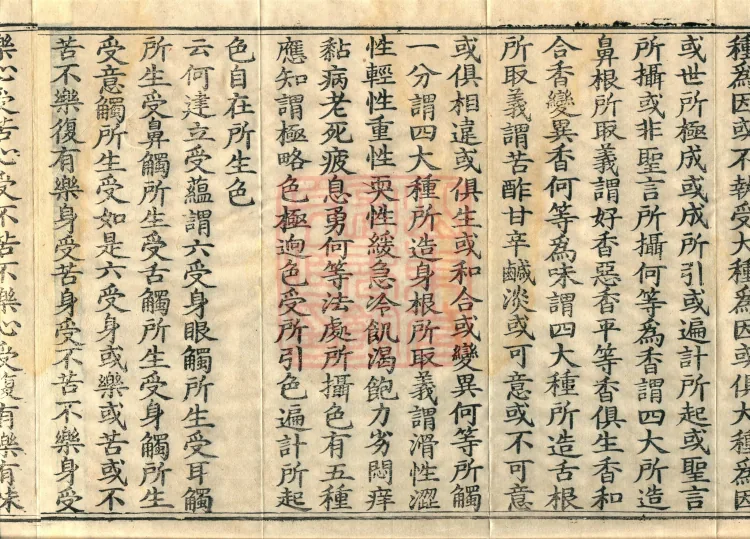 種為因或不執受大種為因或俱大種為因
或世所極成或成所引或遍計所起或聖言
所攝或非聖言所攝何等為香謂四大所造
鼻根所取義謂好香惡香平等香俱生香和
合香變異香何等為味謂四大種所造舌根
所取義謂苦酢甘辛鹹淡或可意或不可意
或俱相違或俱生或和合或變異何等所觸
一分謂四大種所造身根所取義謂滑性澀
性輕性重性耎性緩急冷飢渴飽力劣悶痒
黏病老死疲息勇何等法處所攝色有五種
應知謂極略色極逈色受所引色遍計所起
色自在所生色
云何建立受蘊謂六受身眼觸所生受耳觸
所生受鼻觸所生受舌觸所生受身觸所生
受意觸所生受如是六受身或樂或苦或不
苦不樂復有樂身受苦身受不苦不樂身受
樂心受苦心受不苦不樂心受復有樂有味